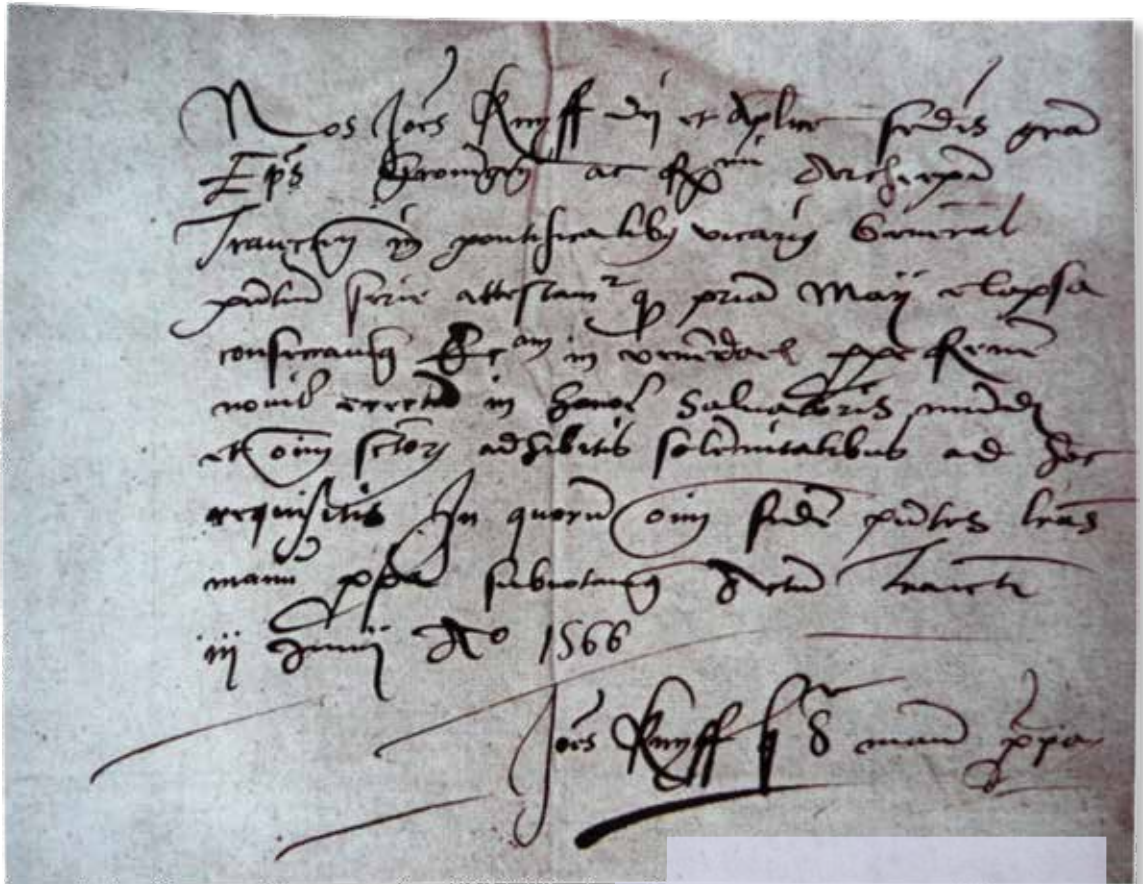 Nos Joes Knyff dei et Aplice sedis gra
Eps Groningen ac Rmi Archiepi
Traiecten in pontificalibus vicarius General
pntium serie attestamr q prima Maij elapsa
consecravimus Ecam in venendael ppe Renen
novit erectam in honor Salvatoris mundi
et oim sctor adhibitis solemnitatibus ad hoc
requisitis In quorum oim fidem pntes lras
manu ppa subnotavimus Actum Traiecti
iij Junij Ao 1566
Joes Knyff manu ppa